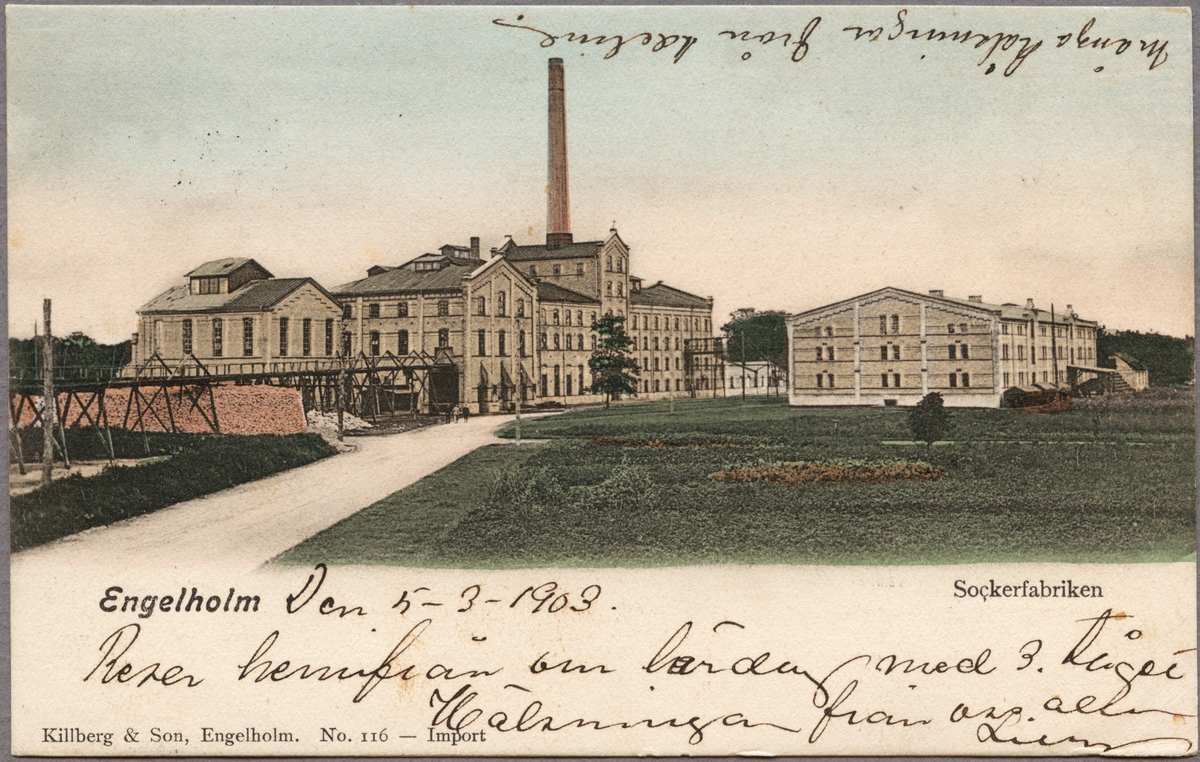 många hälsningar från
Engelholm Den 5-3-1903.
Sockerfabriken
Reser hemifrån om lördag med 3. tåget
Hälsningar från oss alla
Killberg & Son, Engelholm. No. 116 — Import